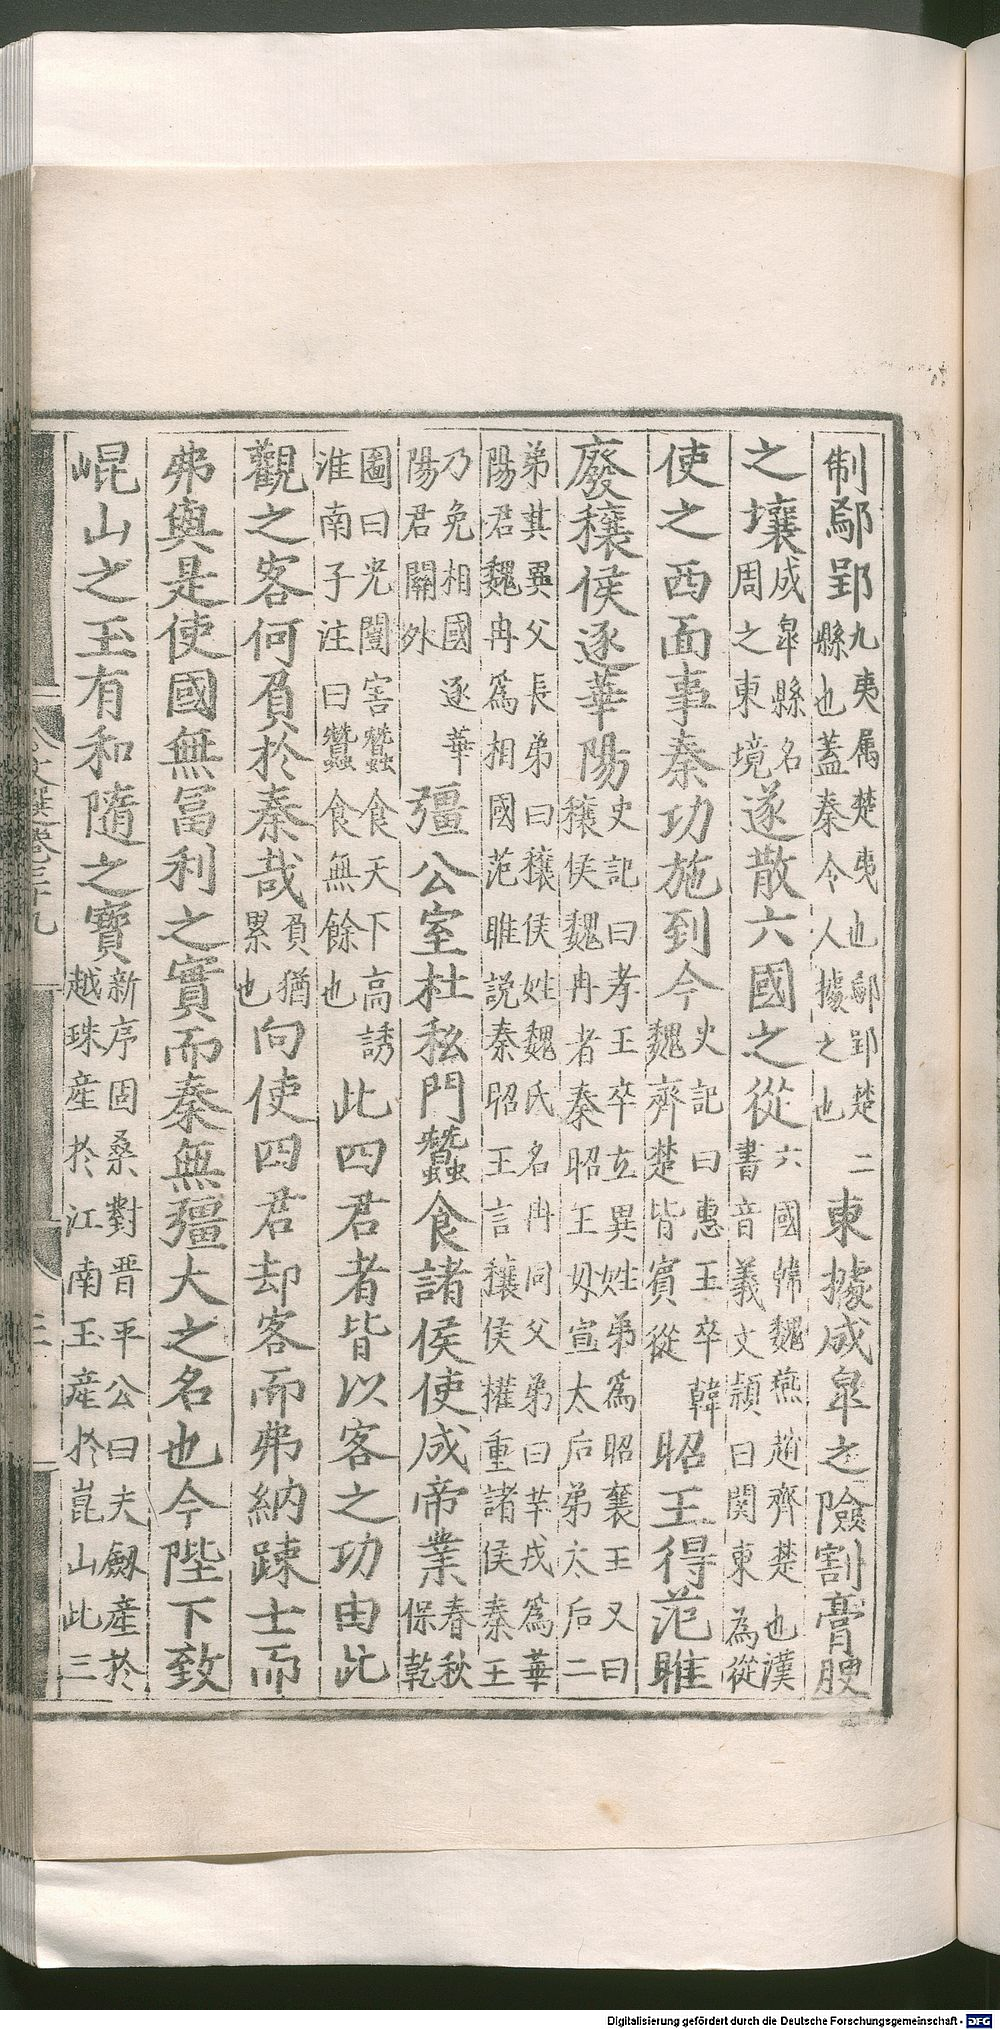 制鄢郢九夷属楚夷也鄢郢楚二縣也蓋秦令人據之也東據成皐之險割膏腴
之壤成皐縣名周之東境遂散六國之從六國韓魏燕趙齊楚也漢書音義文潁曰関東為從
使之西面事秦功施到今史記曰惠王卒韓魏齊楚皆賓從昭王得范雎
廢穰侯逐華陽史記曰孝王卒立異姓弟爲昭襄王又曰穰侯魏冉者秦昭王母宣太后弟太后二
弟其異父長弟曰穰侯姓魏氏名冉同父弟曰芉戎爲華陽君魏冉爲相國范雎説秦昭王言穰侯擢重諸侯秦王
乃免相國逐華陽君關外彊公室杜私門蠶食諸侯使成帝業春秋保乾
圖曰光闓害蠶食天下高誘淮南子注曰蠶食無餘也此四君者皆以客之功由此
觀之客何負於秦哉負猶累也向使四君却客而弗納踈士而
弗與是使國無冨利之實而秦無彊大之名也今陛下致
崐山之玉有和隨之寶新序固桑對晋平公曰夫劔產於越珠產於江南玉產於崑山此三
文選卷三十九
三
Digitalisierung gefördert durch die Deutsche Forschungsgemeinschaft - DFG